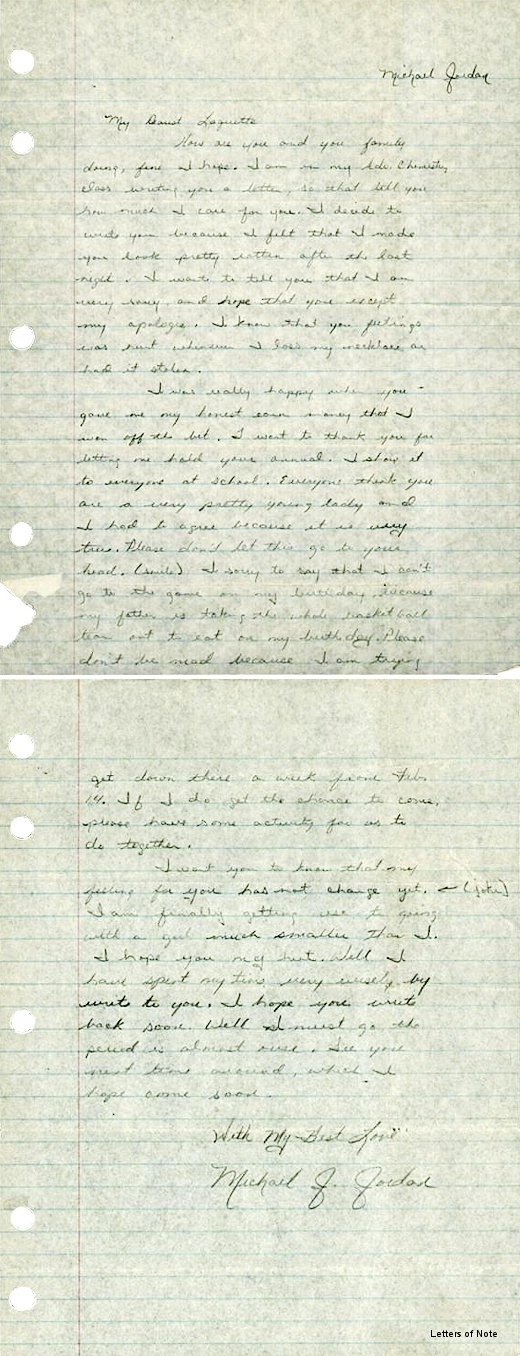 Michael Jordan
My Dearest Laquette
How are you and you family
doing, fine I hope. I am in my Adv. Chemistry
class writing you a letter, so that tell you
how much I care for you. I decide to
write you because I felt that I made
you look pretty rotten after the last
night. I want to tell you that I am
very sorry and hope that you except
my apologie. I know that you feelings
was hurt whenever I loss my necklace or
had it stolen.
I was really happy when you
gave me my honest earn money that I
won off the bet. I want to thank you for
letting me hold your annual. I show it
to everyone at school. Everyone think you
are a very pretty young lady and
I had to agree because it is very
true. Please don't let this go to your
head. (smile) I sorry to say that I can't
go to the game on my birthday because
my father is taking the whole basketball
team out to eat on my birthday. Please
don't be mad because I am trying
get down there a week from Feb.
14. If I do get the chance to come,
please have some activity for us to
do together.
I want you to know that my
feeling for you has not change yet. (joke)
I am finally getting use to going
with a girl much smaller than I.
I hope you my hert. Well I
have spent my time very wisely by
write to you. I hope you write
back soon. Well I must go the
period is almost over. See you
next time around, which I
hope come soon.
With My Best Love
Michael J. Jordan
Letters of Note